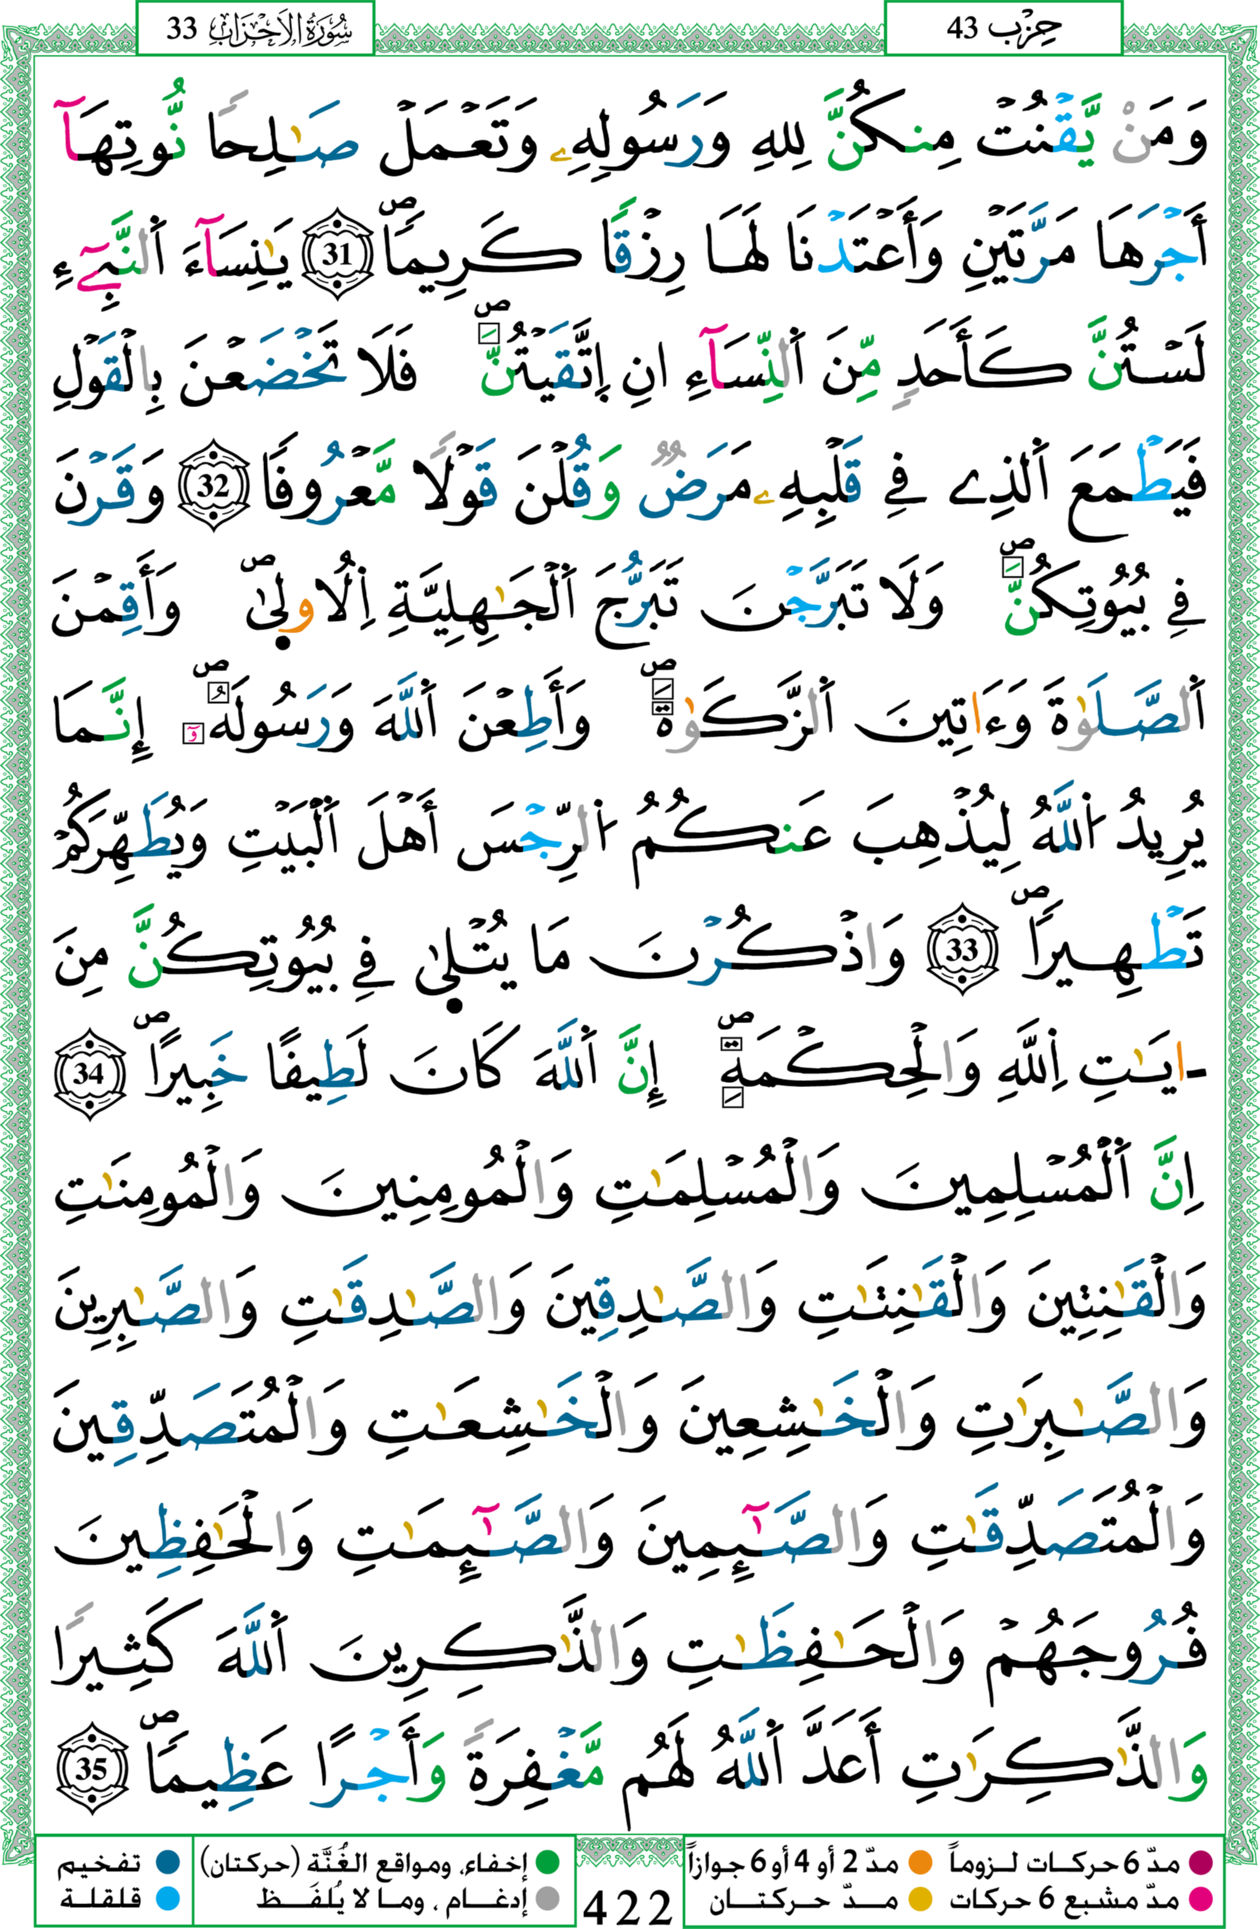 حِزْب 43
سُورَةُ الاَحْزَابِ 33
وَمَنْ يَّقْنُتْ مِنكُنَّ لِلهِ وَرَسُولِهِۦ وَتَعْمَلْ صَٰلِحًا نُّوتِهَآ
أَجْرَهَا مَرَّتَيْنِ وَأَعْتَدْنَا لَهَا رِزْقًا كَرِيمًاۖ 31 يَٰنِسَآءَ اَ۬لنَّبِےٓءِ
لَسْتُنَّ كَأَحَدٍ مِّنَ اَ۬لنِّسَآءِ انِ اِتَّقَيْتُنَّۖ فَلَا تَخْضَعْنَ بِالْقَوْلِ
فَيَطْمَعَ اَ۬لذِے فِے قَلْبِهِۦ مَرَضٌ وَقُلْنَ قَوْلًا مَّعْرُوفًا 32 وَقَرْنَ
فِے بُيُوتِكُنَّۖ وَلَا تَبَرَّجْنَ تَبَرُّجَ اَ۬لْجَٰهِلِيَّةِ اِ۬لُاول۪يٰۖ وَأَقِمْنَ
اَ۬لصَّلَوٰةَ وَءَاتِينَ اَ۬لزَّكَوٰةَۖ وَأَطِعْنَ اَ۬للَّهَ وَرَسُولَهُۥٓۖ إِنَّمَا
يُرِيدُ اُ۬للَّهُ لِيُذْهِبَ عَنكُمُ اُ۬لرِّجْسَ أَهْلَ اَ۬لْبَيْتِ وَيُطَهِّرَكُمْ
تَطْهِيرًاۖ 33 وَاذْكُرْنَ مَا يُتْل۪يٰ فِے بُيُوتِكُنَّ مِنَ
ـايَٰتِ اِ۬للَّهِ وَالْحِكْمَةِۖ إِنَّ اَ۬للَّهَ كَانَ لَطِيفًا خَبِيرًاۖ 34
اِنَّ اَ۬لْمُسْلِمِينَ وَالْمُسْلِمَٰتِ وَالْمُومِنِينَ وَالْمُومِنَٰتِ
وَالْقَٰنِتِينَ وَالْقَٰنِتَٰتِ وَالصَّٰدِقِينَ وَالصَّٰدِقَٰتِ وَالصَّٰبِرِينَ
وَالصَّٰبِرَٰتِ وَالْخَٰشِعِينَ وَالْخَٰشِعَٰتِ وَالْمُتَصَدِّقِينَ
وَالْمُتَصَدِّقَٰتِ وَالصَّٰٓئِمِينَ وَالصَّٰٓئِمَٰتِ وَالْحَٰفِظِينَ
فُرُوجَهُمْ وَالْحَٰفِظَٰتِ وَالذَّٰكِرِينَ اَ۬للَّهَ كَثِيرًا
وَالذَّٰكِرَٰتِ أَعَدَّ اَ۬للَّهُ لَهُم مَّغْفِرَةً وَأَجْرًا عَظِيمًاۖ 35
مدّ 6 حركات لـزوماً مدّ 2 أو 4 أو 6 جوازاً
مدّ مشبع 6 حركات مـدّ حـركتـان
422
إخفاء، ومواقع الغُنَّة (حركتان) تفخيم
إدغـام ، ومـا لا يُلفَـظ قلقلة